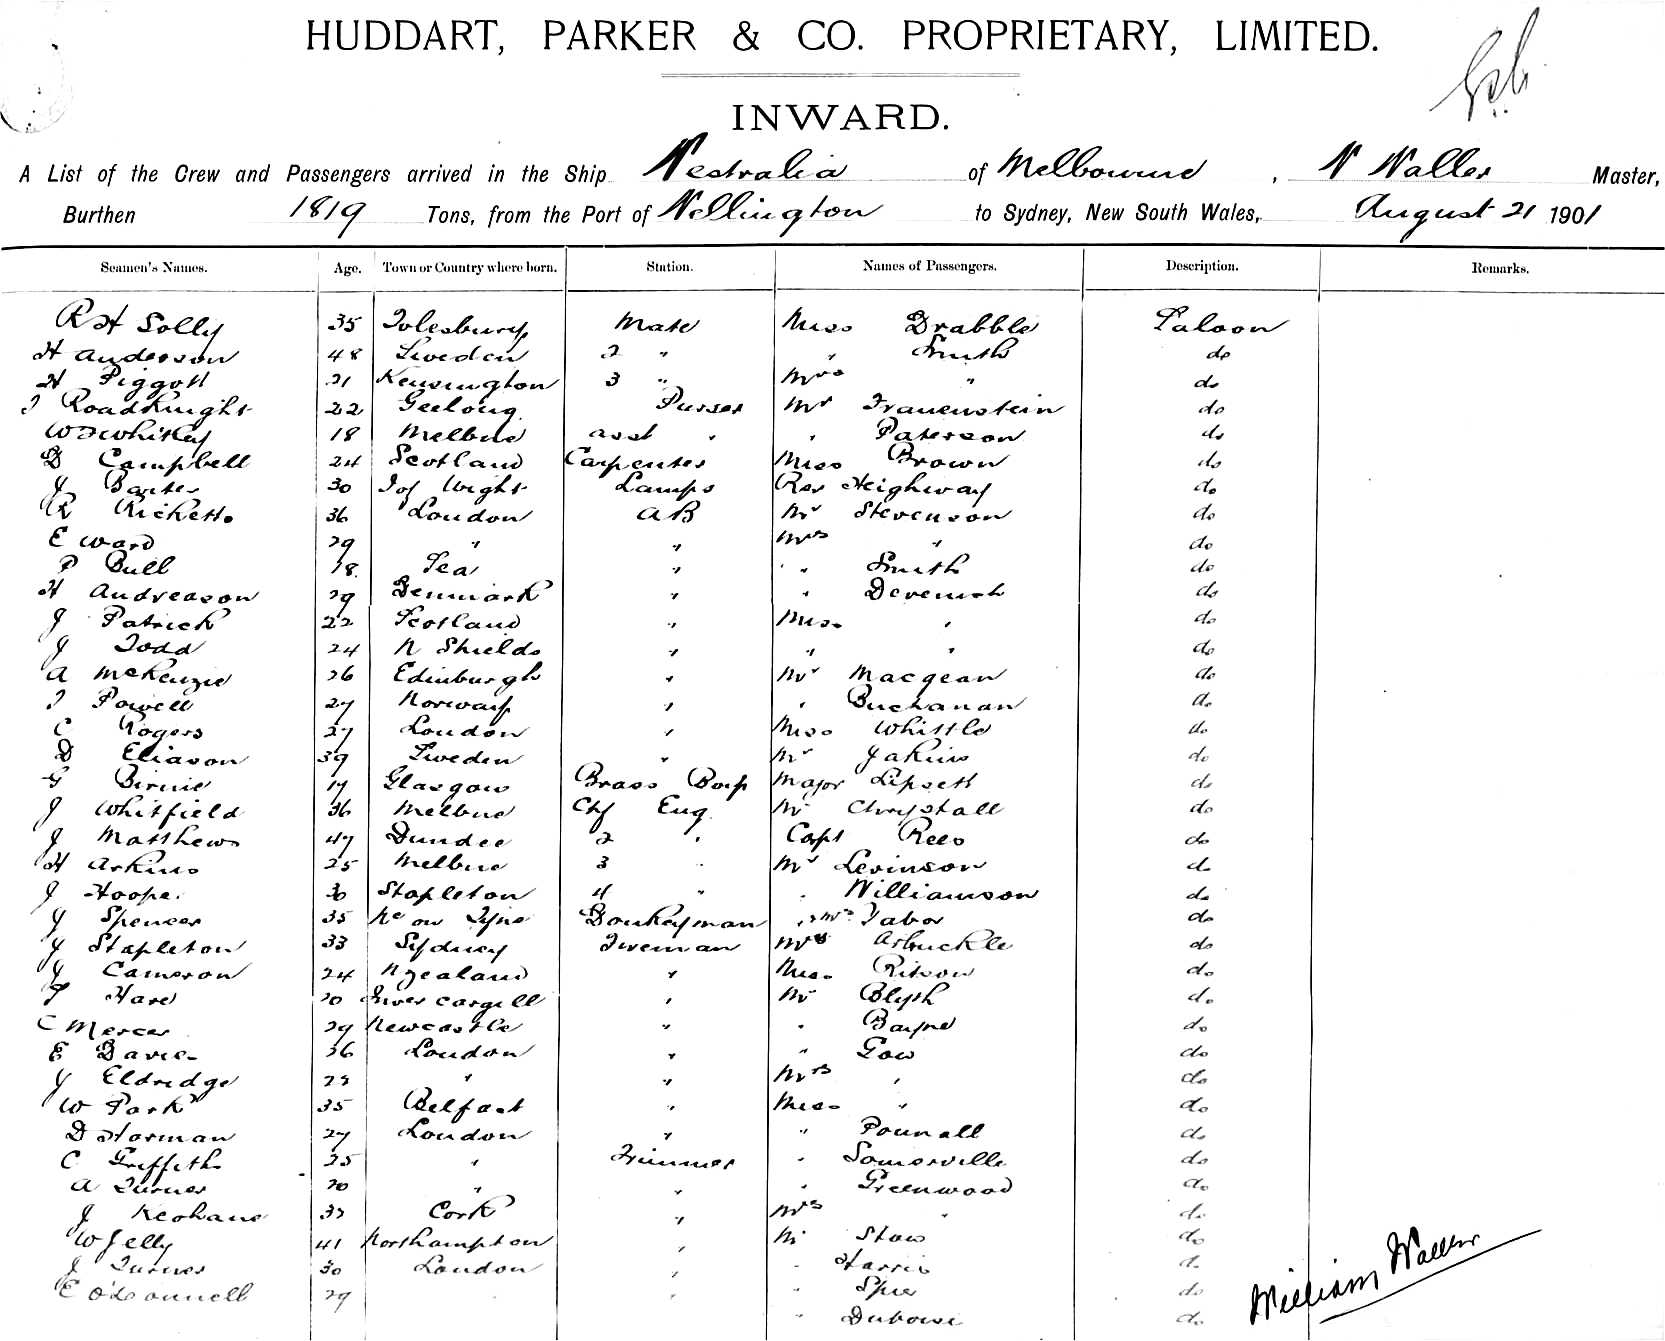 HUDDART, PARKER & CO. PROPRIETARY, LIMITED.
INWARD.
A List of the Crew and Passengers arrived in the Ship Westralia of Melbourne, W Waller Master,
Burthen 1819 Tons, from the Port of Wellington to Sydney, New South Wales, August 21 1901
Seamen's Names. Age. Town or Country where born. Station. Names of Passengers. Description. Remarks.
R H Solly 35 Tolesbury Mate Miss Drabble Saloon
H Anderson 48 Sweden 2 " " Smith do
H Piggott 21 Kensington 3 " Mrs " do
J Roadknight 22 Geelong Purser Mr Frauenstein do
W J Whitley 18 Melbne asst " " Paterson do
D Campbell 24 Scotland Carpenter Miss Brown do
J Baxter 30 I of Wight Lamps Rev Heighway do
R Ricketts 36 London AB Mr Stevenson do
E Ward 29 " " Mrs " do
P Bull 18 Sea " " Smith do
H Andreason 29 Denmark " " Devenish do
J Patrick 22 Scotland " Miss " do
J Todd 24 N Shields " " " do
A McKenzie 26 Edinburgh " Mr Macgean do
J Powell 27 Norway " " Buchanan do
C Rogers 27 London " Miss Whittle do
D Eliason 39 Sweden " Mr Jakins do
G Birnie 17 Glasgow Brass Boy Major Lipsett do
J Whitfield 36 Melbne Chf Eng. Mr Chrystall do
J Matthews 47 Dundee 2 " Capt Rees do
H Arkins 25 Melbne 3 " Mr Levinson do
J Hooper 30 Stapleton 4 " " Williamson do
J Spencer 35 Nc on Tyne Donkeyman " & Mrs Tabor do
J Stapleton 33 Sydney Fireman Mrs Arbuckle do
J Cameron 24 N Zealand " Miss Ritson do
Hare 20 Invercargill " Mr Blyth do
C Mercer 29 Newcastle " " Bayne do
E Davies 36 London " " Gow do
J Eldridge " " Mrs " do
W Park 35 Belfast " Miss " do
D Horman 27 London " " Pounall do
C Griffiths 25 " Trimmer " Somerville do
A Turner 20 " " " Greenwood do
J Keohane 33 Cork " Mrs " do
W Jelly 41 Northampton " Mr Stow do
J Turner 30 London " " Harris do
E O'Connell 29 " " Spie do
" Duboise do
William Waller